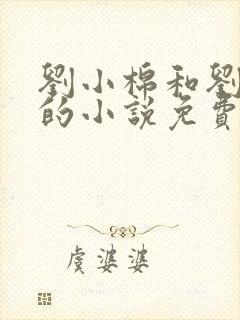 劉小棉和劉
的小說免費
虞婆婆